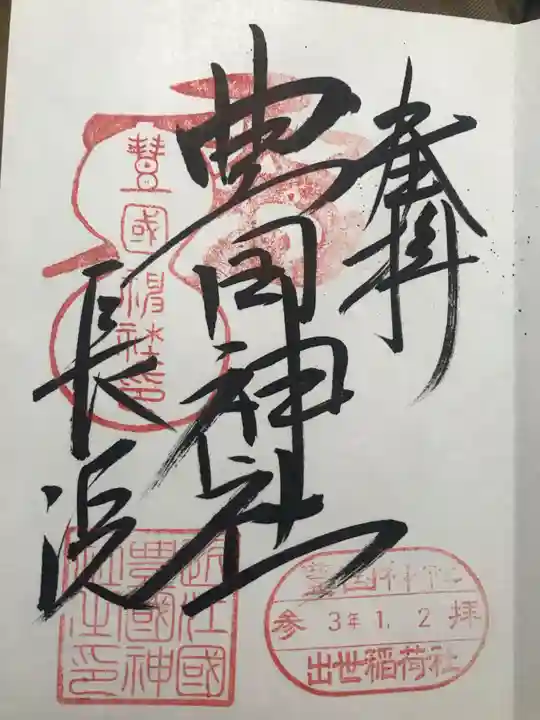 奉拝
豊国神社
長浜
豐國神社
近江國
豊國神
社之印
豊国神社
参 3年1.2 拝
出世稲荷社